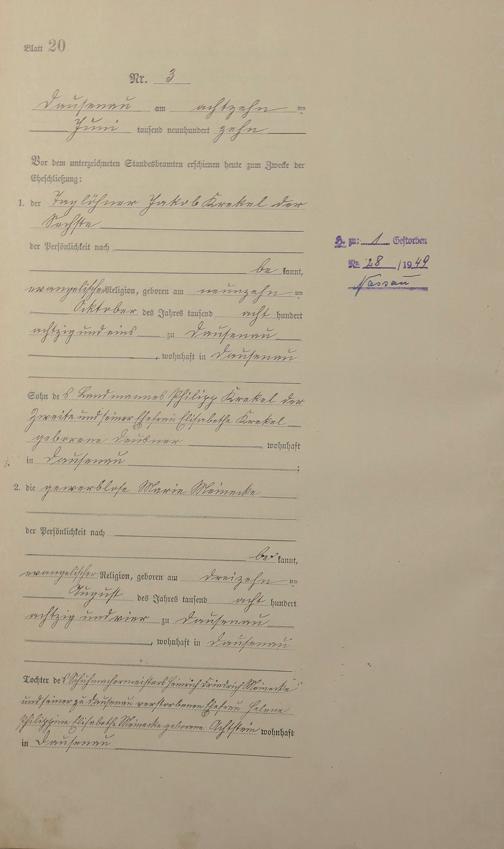 Blatt 20
Nr. 3
Dausenau am achtzehn=
Juni tausend neunhundert zehn
Vor dem unterzeichneten Standesbeamten erschienen heute zum Zwecke der
Eheschließung:
1. der Taglöhner Jakob Krekel der
Sechste
der Persönlichkeit nach
be kannt,
evangelischer Religion, geboren am neunzehn=
Oktober des Jahres tausend acht hundert
achtzig und eins zu Dausenau
, wohnhaft in Dausenau
Sohn des Landmannes Philipp Krekel der
Zweite und seiner Ehefrau Elisabethe Krekel
geborene , wohnhaft
in Dausenau ;
2. die gewerblose Marie Meinecke
der Persönlichkeit nach
be kannt,
evangelischer Religion, geboren am dreizehn=
August des Jahres tausend acht hundert
achtzig und vier zu Dausenau
, wohnhaft in Dausenau
Tochter des Schuhmachermeisters Heinrich Friedrich Meinecke
und seiner zu Dausenau verstorbenen Ehefrau Helene
Philippine Elisabethe Meinecke geborene wohnhaft
in Dausenau
H. zu: 1 Gestorben
Nr. 28 /1949
Nassau